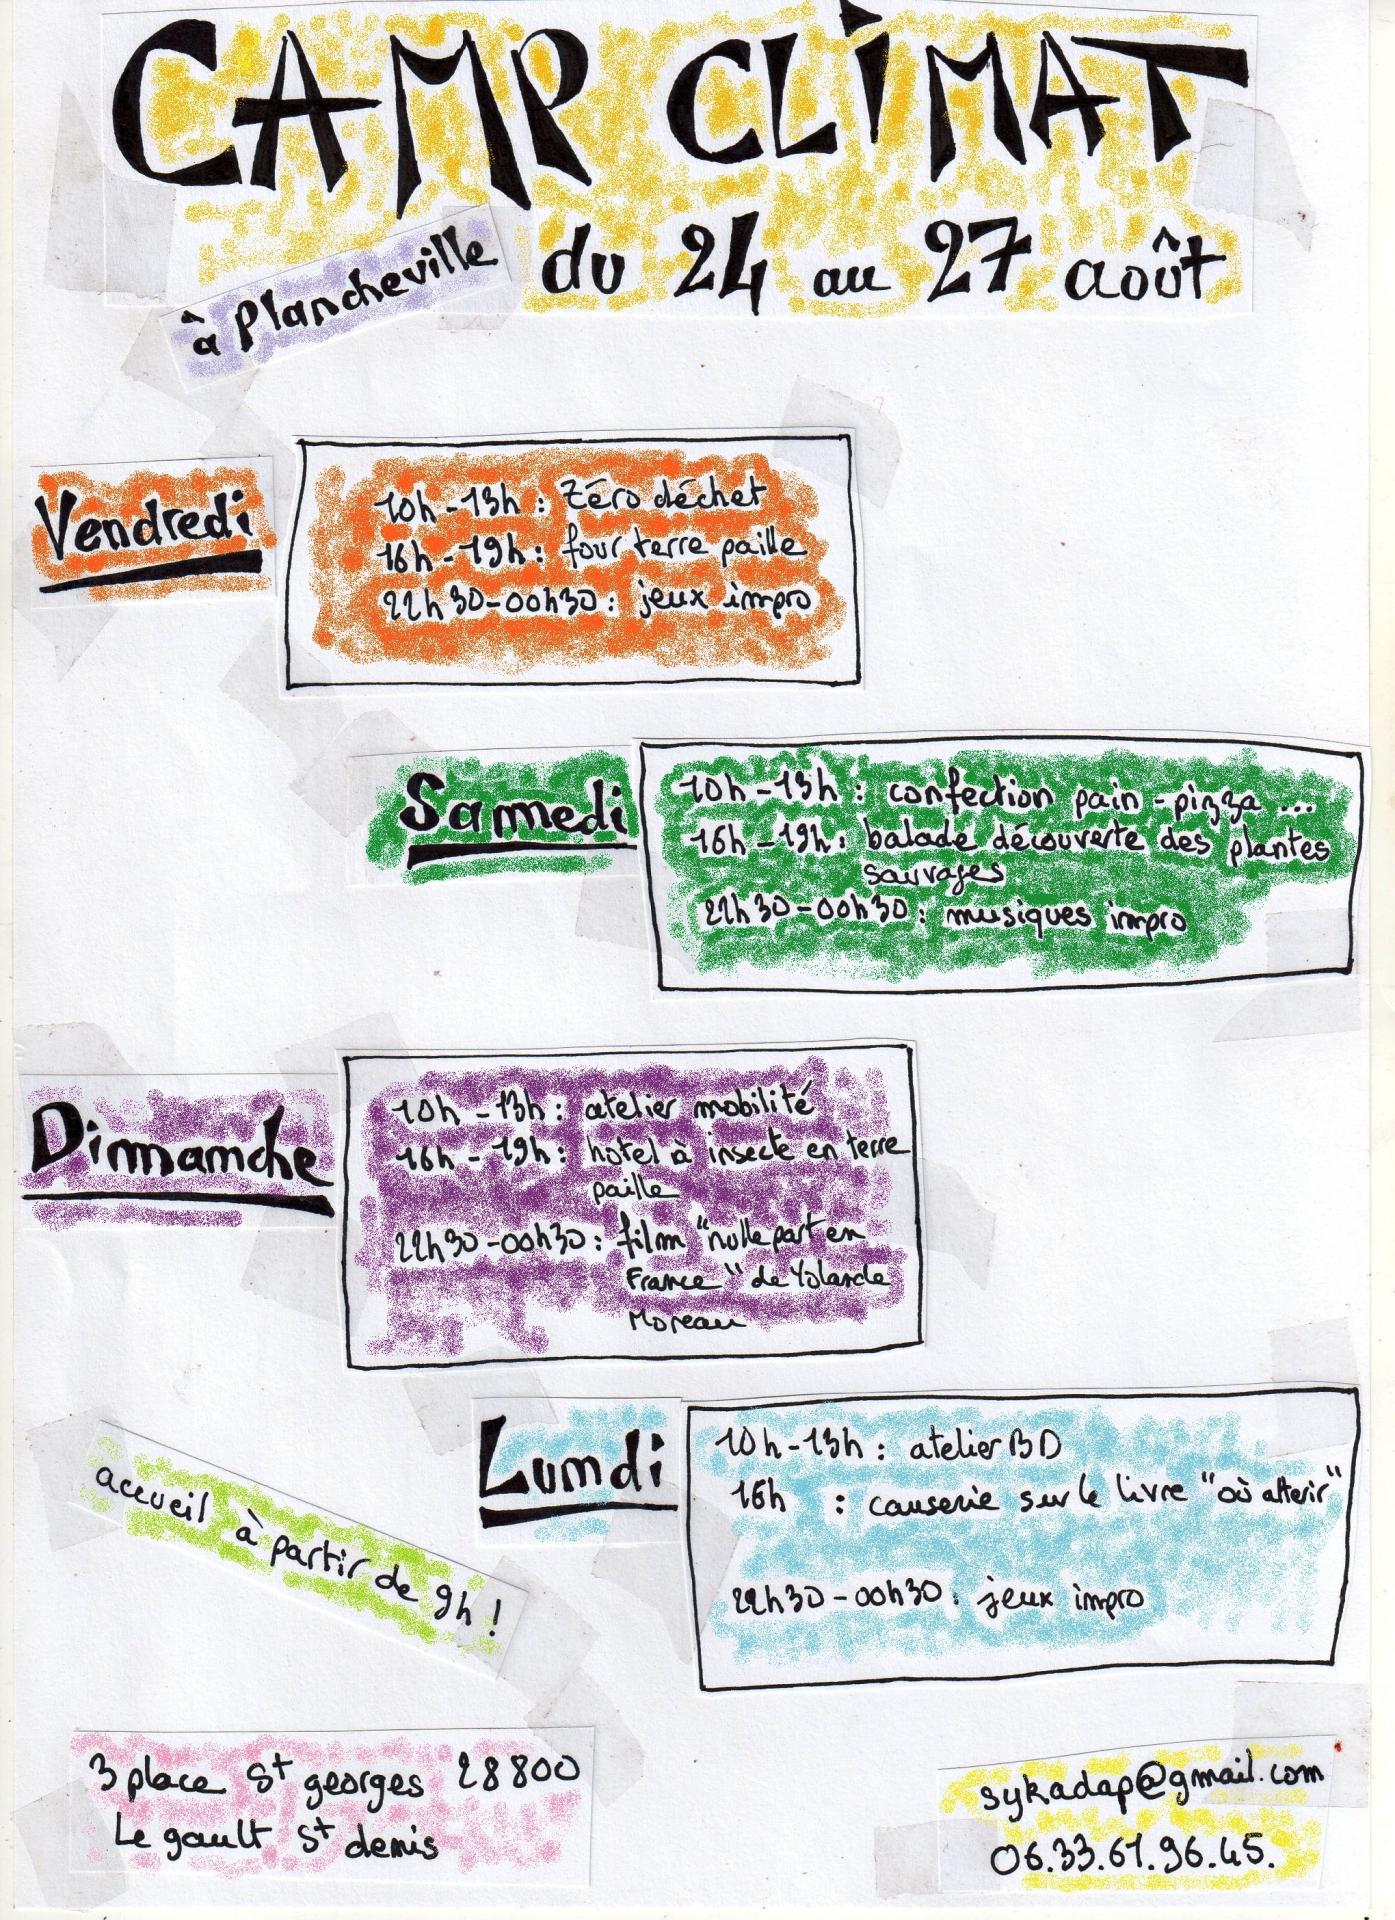 CAMP CLIMAT
à Plancheville
du 24 au 27 août
Vendredi
10h-13h : Zéro déchet
16h-19h : four terre paille
22h30-00h30 : jeux impro
Samedi
10h-13h : confection pain-pizza...
16h-19h : balade découverte des plantes
sauvages
22h30-00h30 : musiques impro
Dimanche
10h-13h : atelier mobilité
16h-19h : hotel à insecte en terre
paille
22h30-00h30 : film "nulle part en
France" de Yolande
Moreau
Lundi
10h-13h : atelier BD
16h : causerie sur le livre "où atterir"
22h30-00h30 : jeux impro
accueil à partir de 9h !
3 place St georges 28800
Le gault St denis
sykadap@gmail.com
06.33.61.96.45.